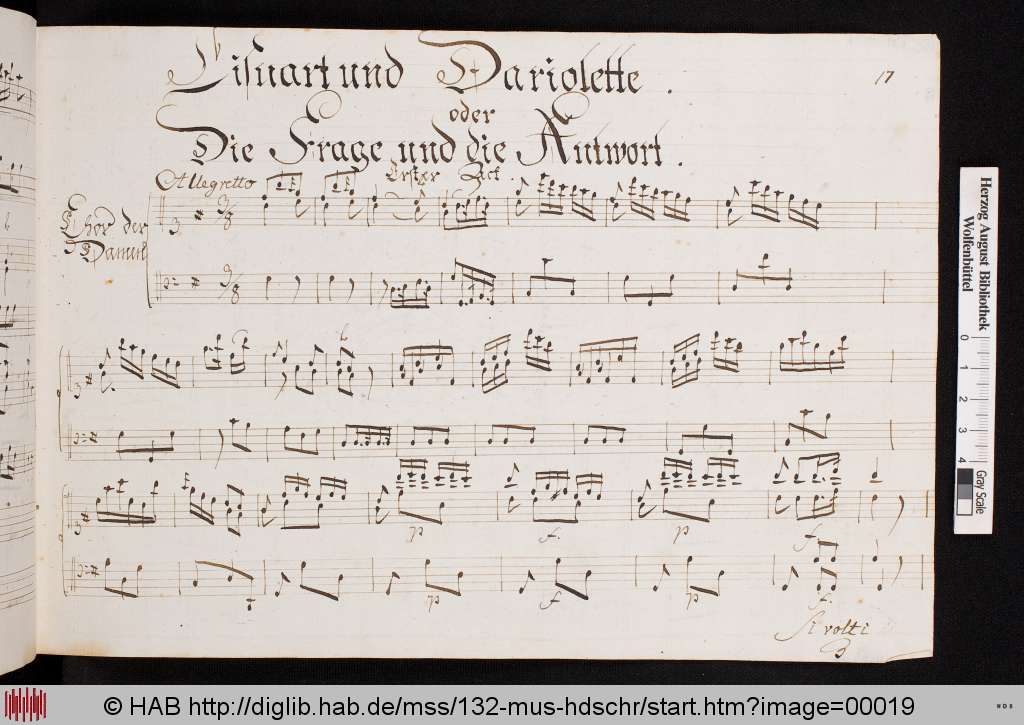 Lisuart und Dariolette.
17
oder
Die Frage und die Antwort.
Erster Act.
Allegretto
Chor der
Damen
3/8
3/8
6
6
p f. p f.
p f p f.
Si volti
Herzog August Bibliothek
Wolfenbüttel
0 1 2 3 4
Gray Scale
© HAB http://diglib.hab.de/mss/132-mus-hdschr/start.htm?image=00019